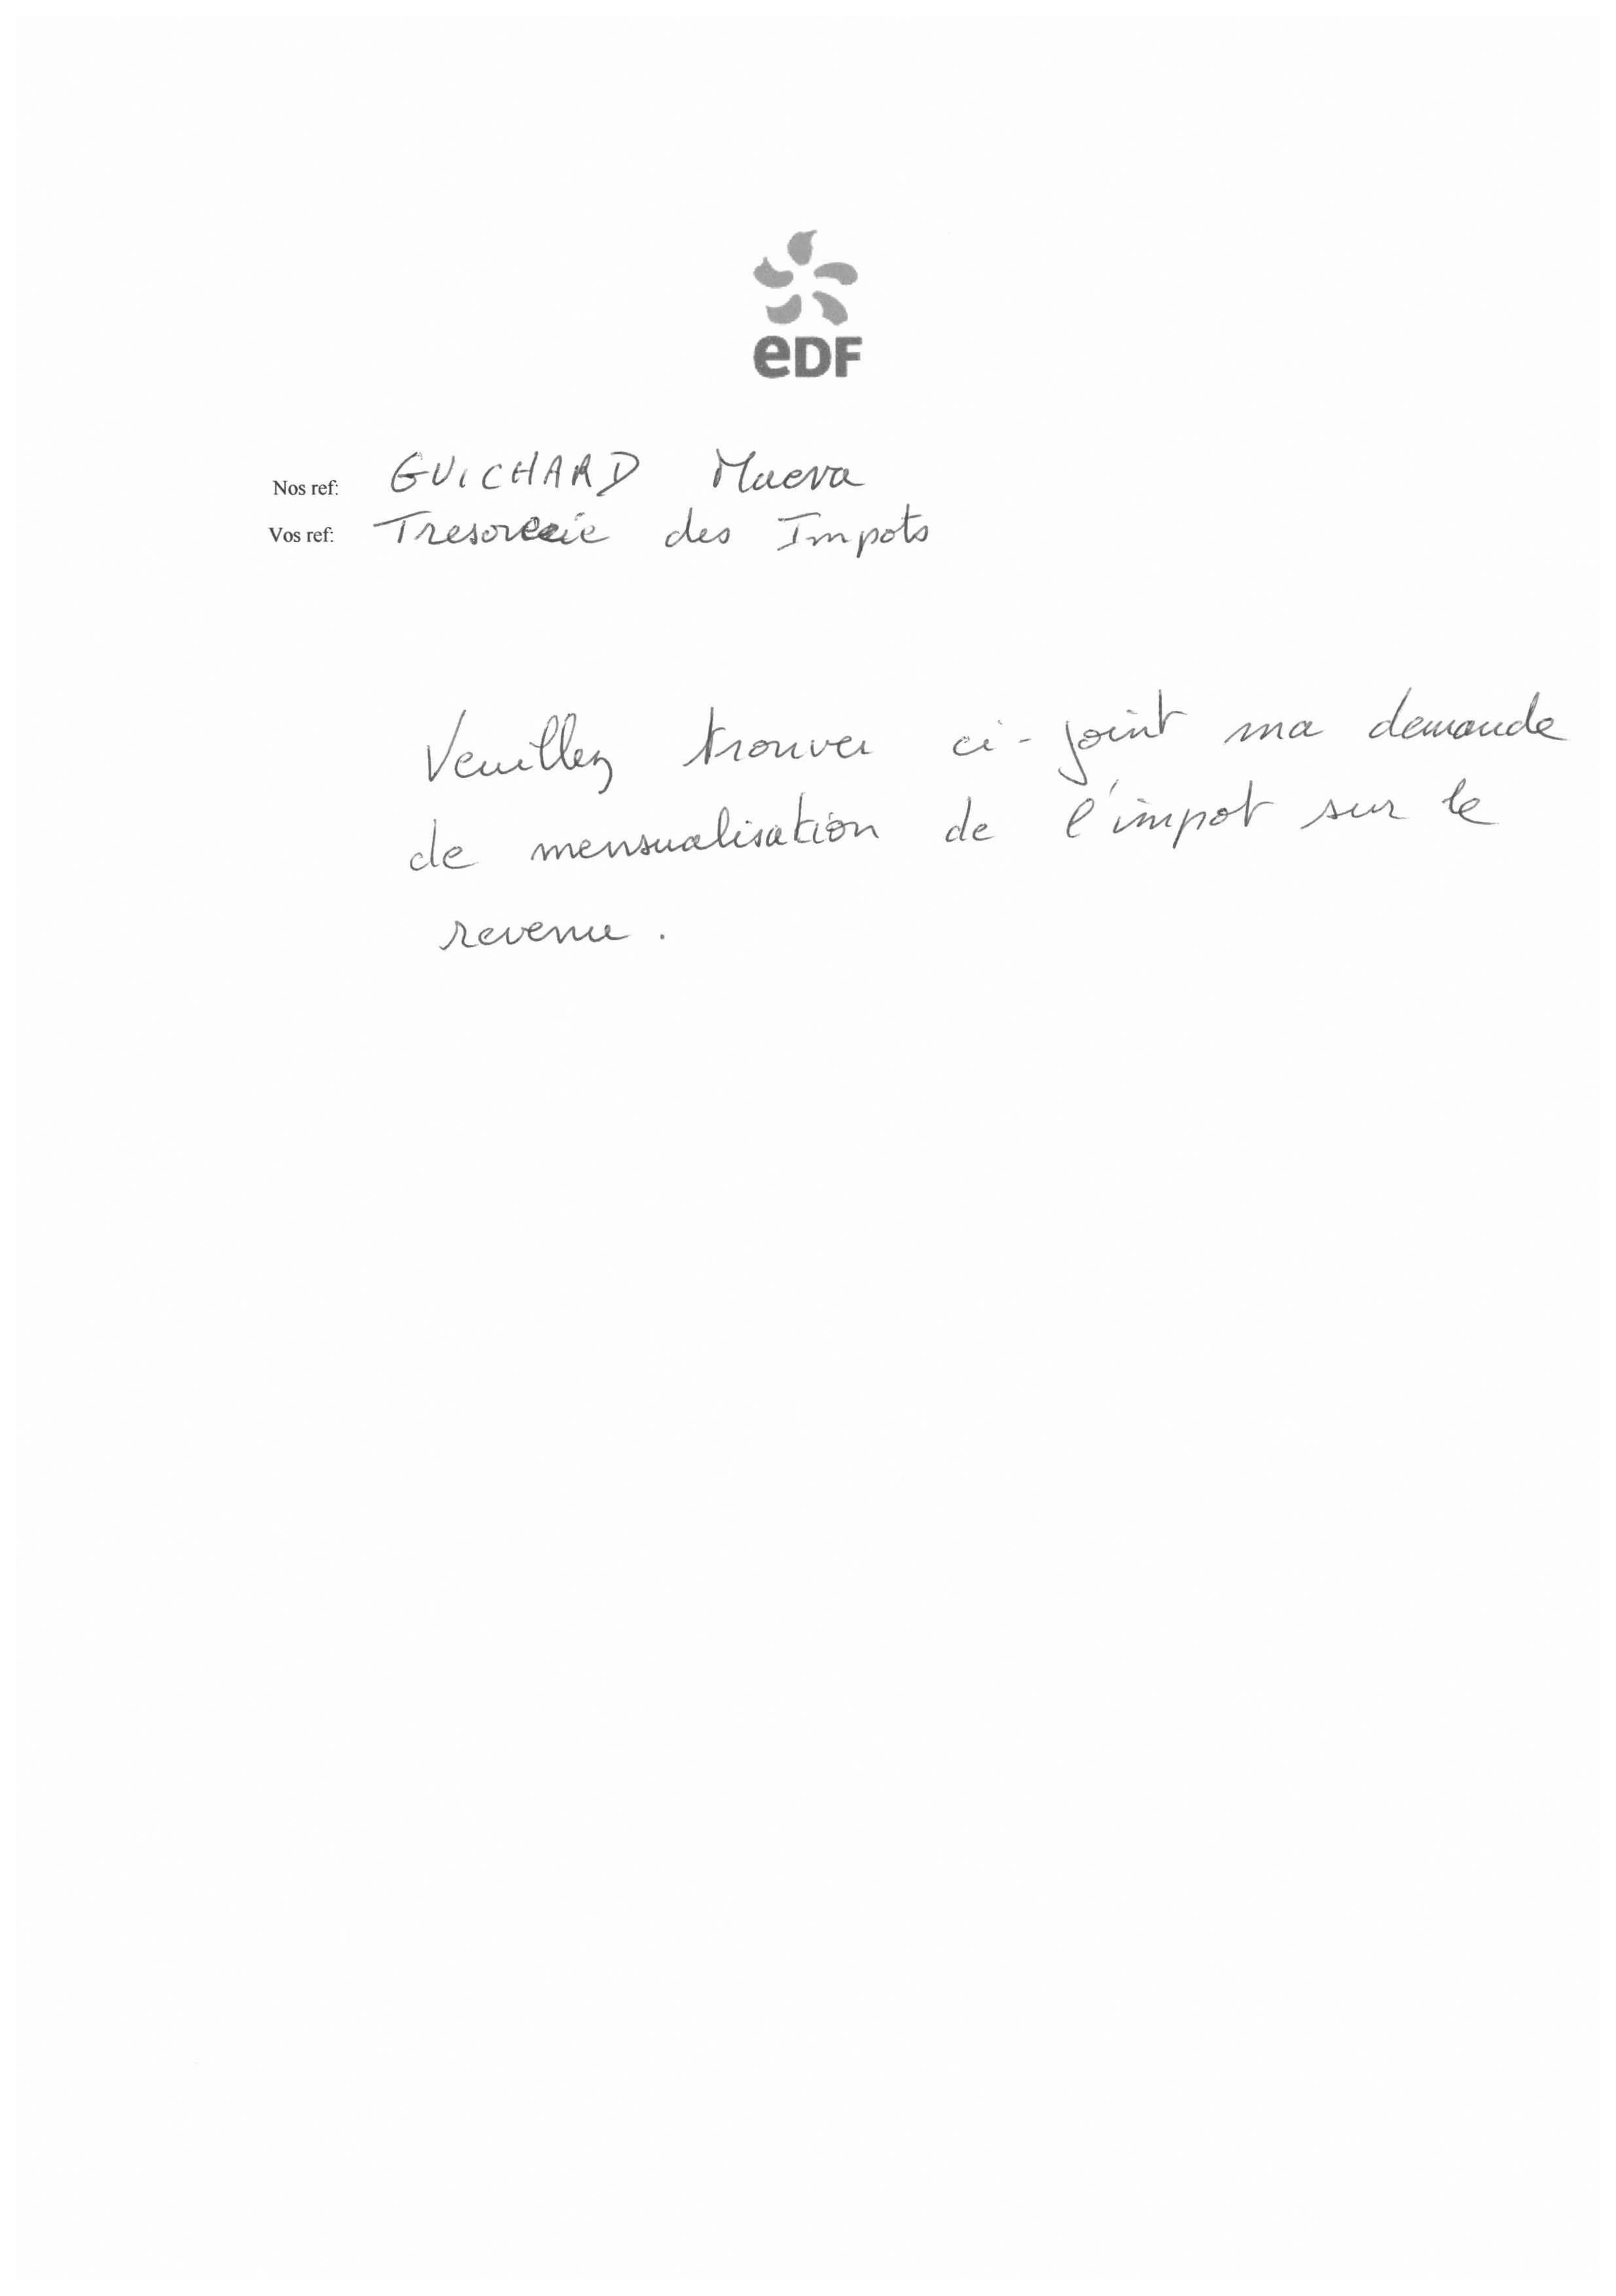 eDF
Nos ref: GUICHARD Maeva
Vos ref: Tresorerie des Impots
Veuillez trouver ci-joint ma demande
de mensualisation de l'impot sur le
revenu.